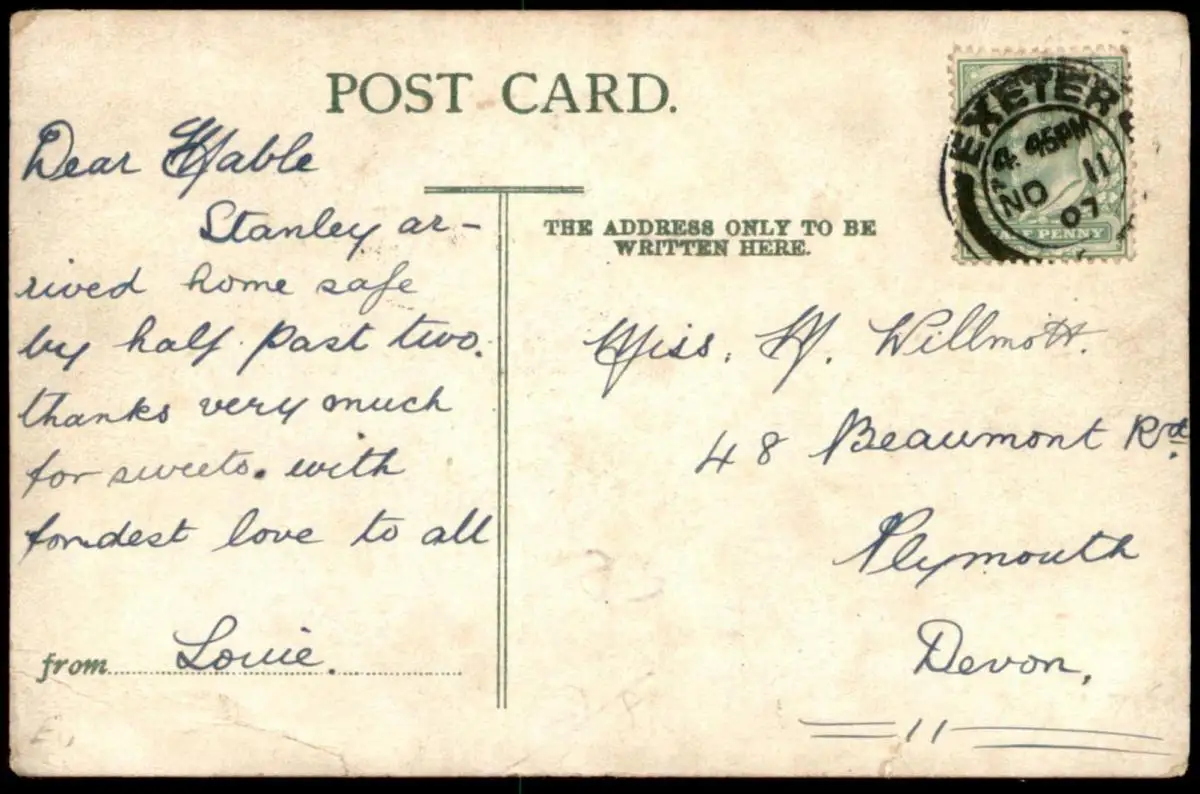 POST CARD.
Dear Mable
Stanley ar-
rived home safe
by half past two.
thanks very much
for sweets. with
fondest love to all
from Louie.
THE ADDRESS ONLY TO BE
WRITTEN HERE.
Miss. M. Willmott.
48 Beaumont Rd.
Plymouth
Devon,
EXETER
4.45PM
NO 11
07
HALF PENNY